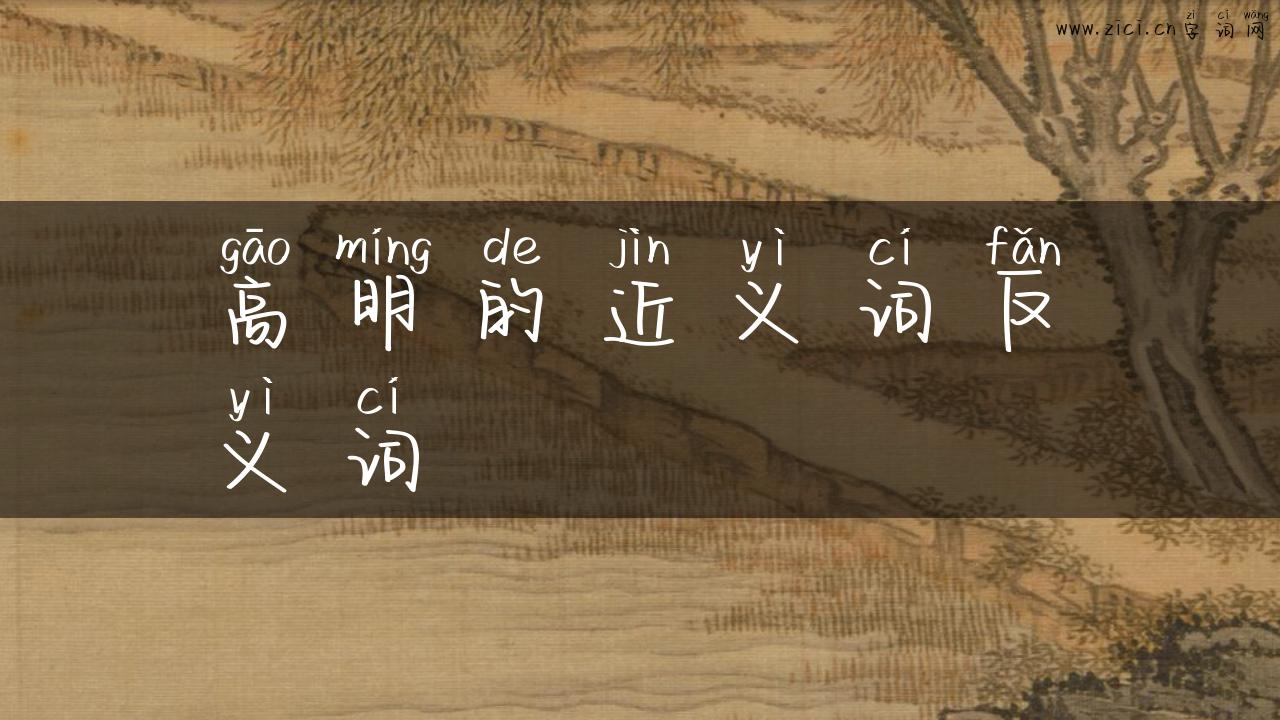 zì cí wǎng
www.zici.cn 字 词 网
gāo míng de jìn yì cí fǎn
高 明 的 近 义 词 反
yì cí
义 词